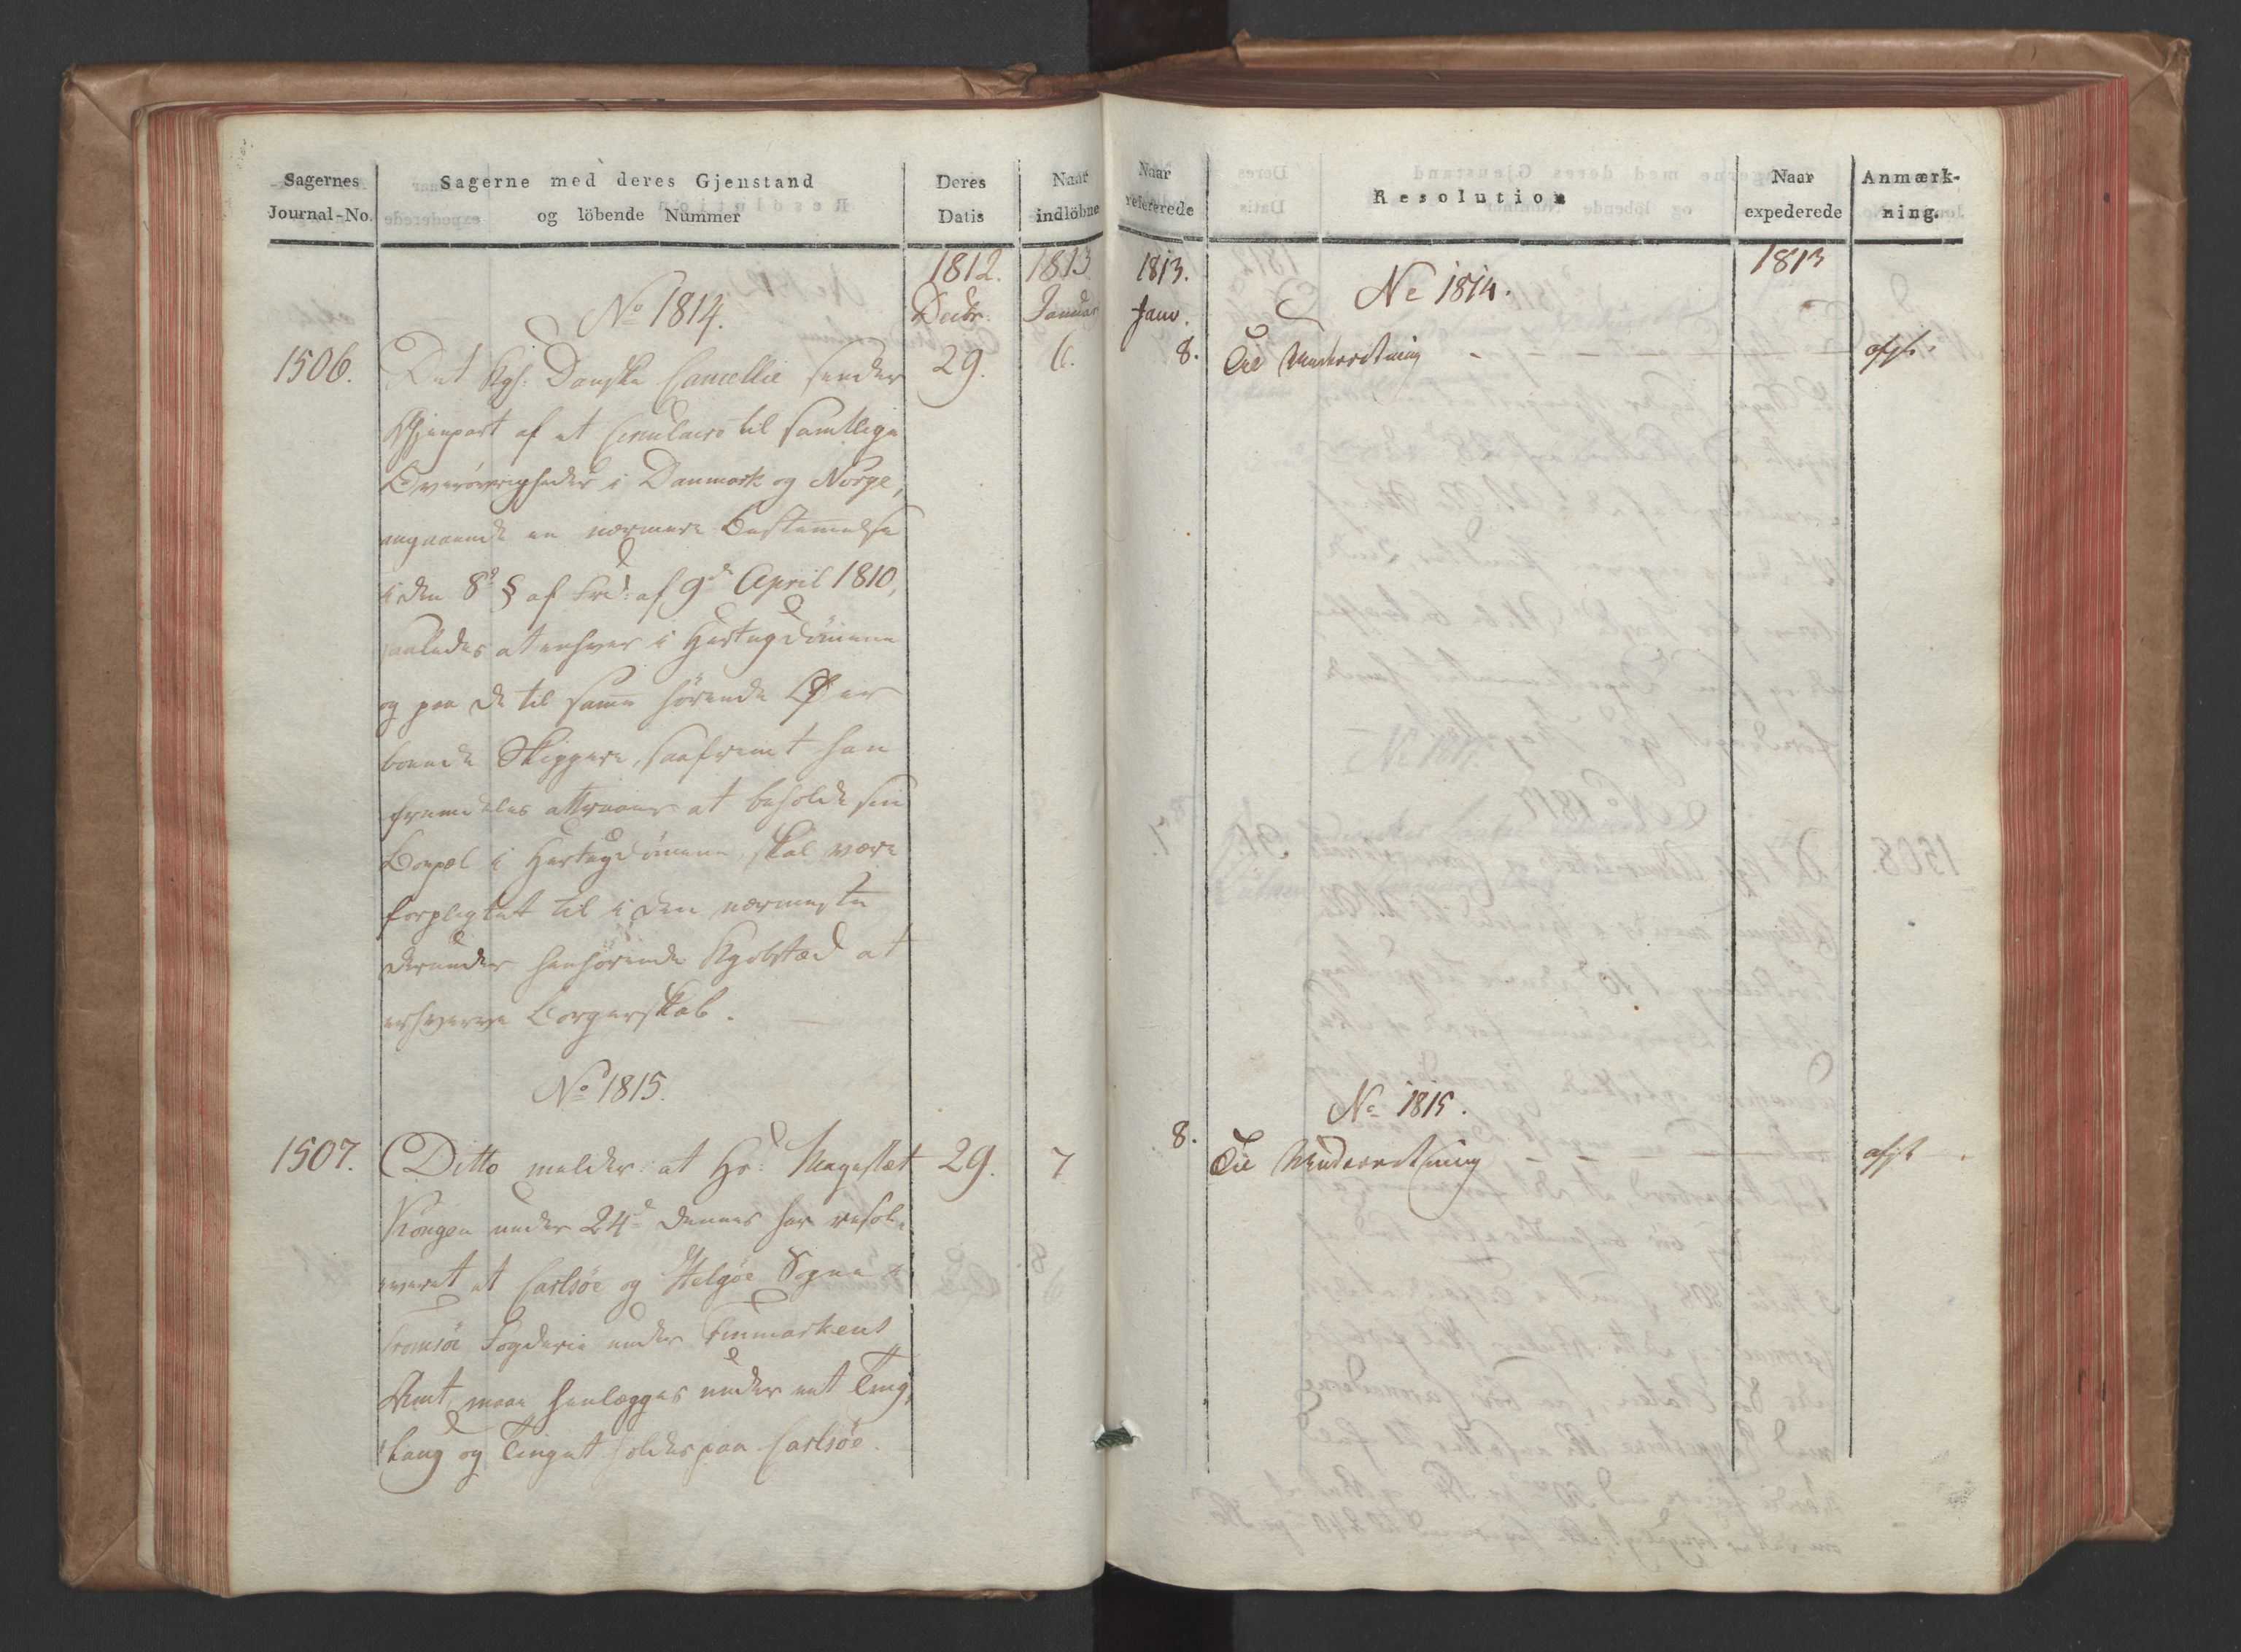 Sagernes
Journal-No.
Sagerne med deres Gjenstand
og löbende Nummer
Deres
Datis
Naar
indløbne
1812.
Decbr.
1813.
Januar
No 1814.
1506.
Det Kgl: Danske Cancellie sender
29.
6.
Gjenpart af et Circulaire til samtlige
Overøvrigheder i Danmark og Norge,
angaaende en nærmere Bestemmelse
i den 8de § af Frd: af 9de April 1810,
saaledes at enhver i Hertugdømmene
og paa de til samme hørende Øer
boende Skippere, saafremt han
fremdeles attraaer at beholde sin
Bopæl i Hertugdømmene, skal være
forpligtet til i den nærmeste
derunder henhørende Kjøbstæd at
erhverve Borgerskab.
No 1815.
1507.
Ditto melder: at Hs: Majestæt
29.
7
Kongen under 24de dennes har resol-
veret at Carlsöe og Helgöe Sogne i
Tromsöe Fogderie under Finmarkens
Amt, maae henlægges under eet Ting-
laug og Tinget holdes paa Carlsöe.
Naar
refererede
Resolution
Naar
expederede
Anmærk-
ning.
1813.
Janv.
1813
No 1814.
8.
Til Underretning - - - - -
afgt.
No 1815.
8.
Til Underretning - - - -
afgt.